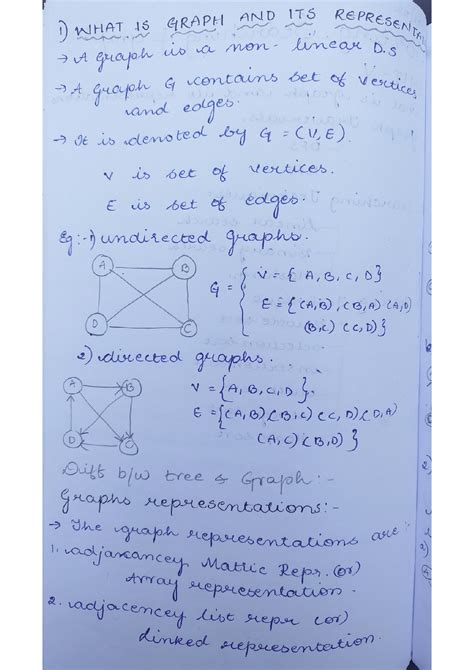 1) WHAT IS GRAPH AND ITS REPRESENTA
→ A graph is a non-linear D.S
→ A graph G contains set of vertices
and edges.
→ It is denoted by G = (V, E).
V is set of vertices.
E is set of edges.
Eg:-1) undirected graphs.
A B
D C
G = { V = {A, B, C, D}
E = {(A,B), (B,A) (A,D)
(B,C) (C,D)}
2) directed graphs.
A B
D C
V = {A, B, C, D}.
E = {(A,B) (B,C) (C,D) (D,A)
(A,C) (B,D)}
Diff b/w tree & Graph:-
Graphs representations:-
→ The graph representations are:-
1. adjaxancey Mattic Repr. (or)
Array representation.
2. adjacencey list repr (or)
Linked representation.